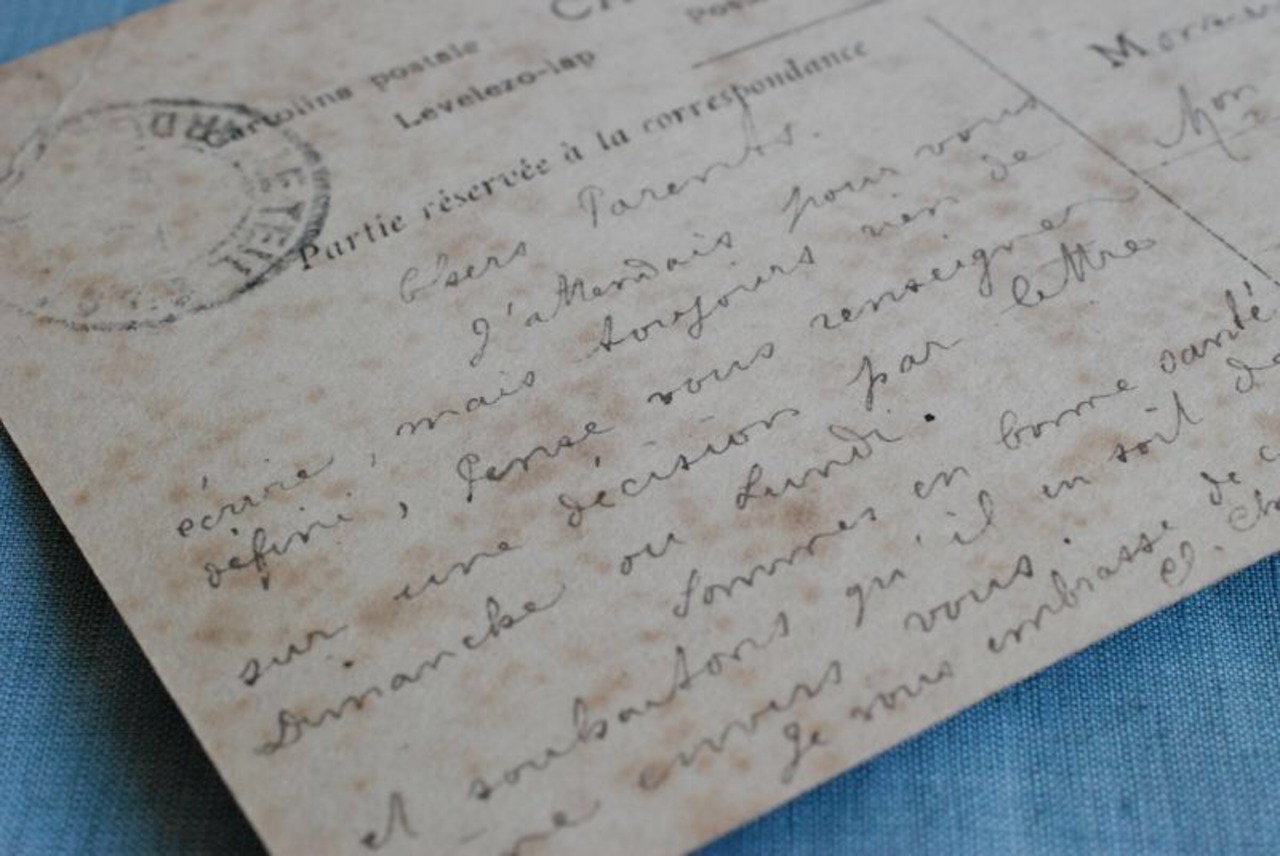 Cartolina postale
Levelezo-lap
Partie réservée à la correspondance
Chers Parents.
J'attendais pour vous
écrire, mais toujours rien de
défini, Pense vous renseigner
sur une décision par lettre
Dimanche ou Lundi.
Sommes en bonne santé
et souhaitons qu'il en soit de
envers vous.
Je vous embrasse de
Mon